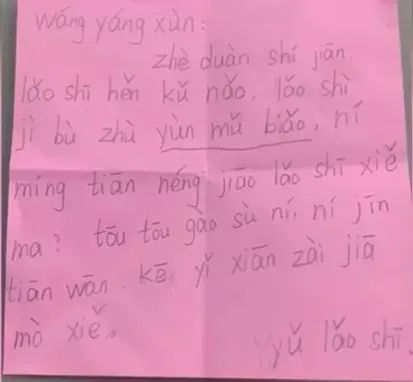 wáng yáng xùn:
zhè duàn shí jiān,
lǎo shī hěn kǔ nǎo, lǎo shì
jì bù zhù yùn mǔ biǎo, ní
míng tiān néng jiāo lǎo shī xiě
ma? tōu tōu gào sù ní, ní jīn
tiān wǎn kē yǐ xiān zài jiā
mò xiě.
yǔ lǎo shī.